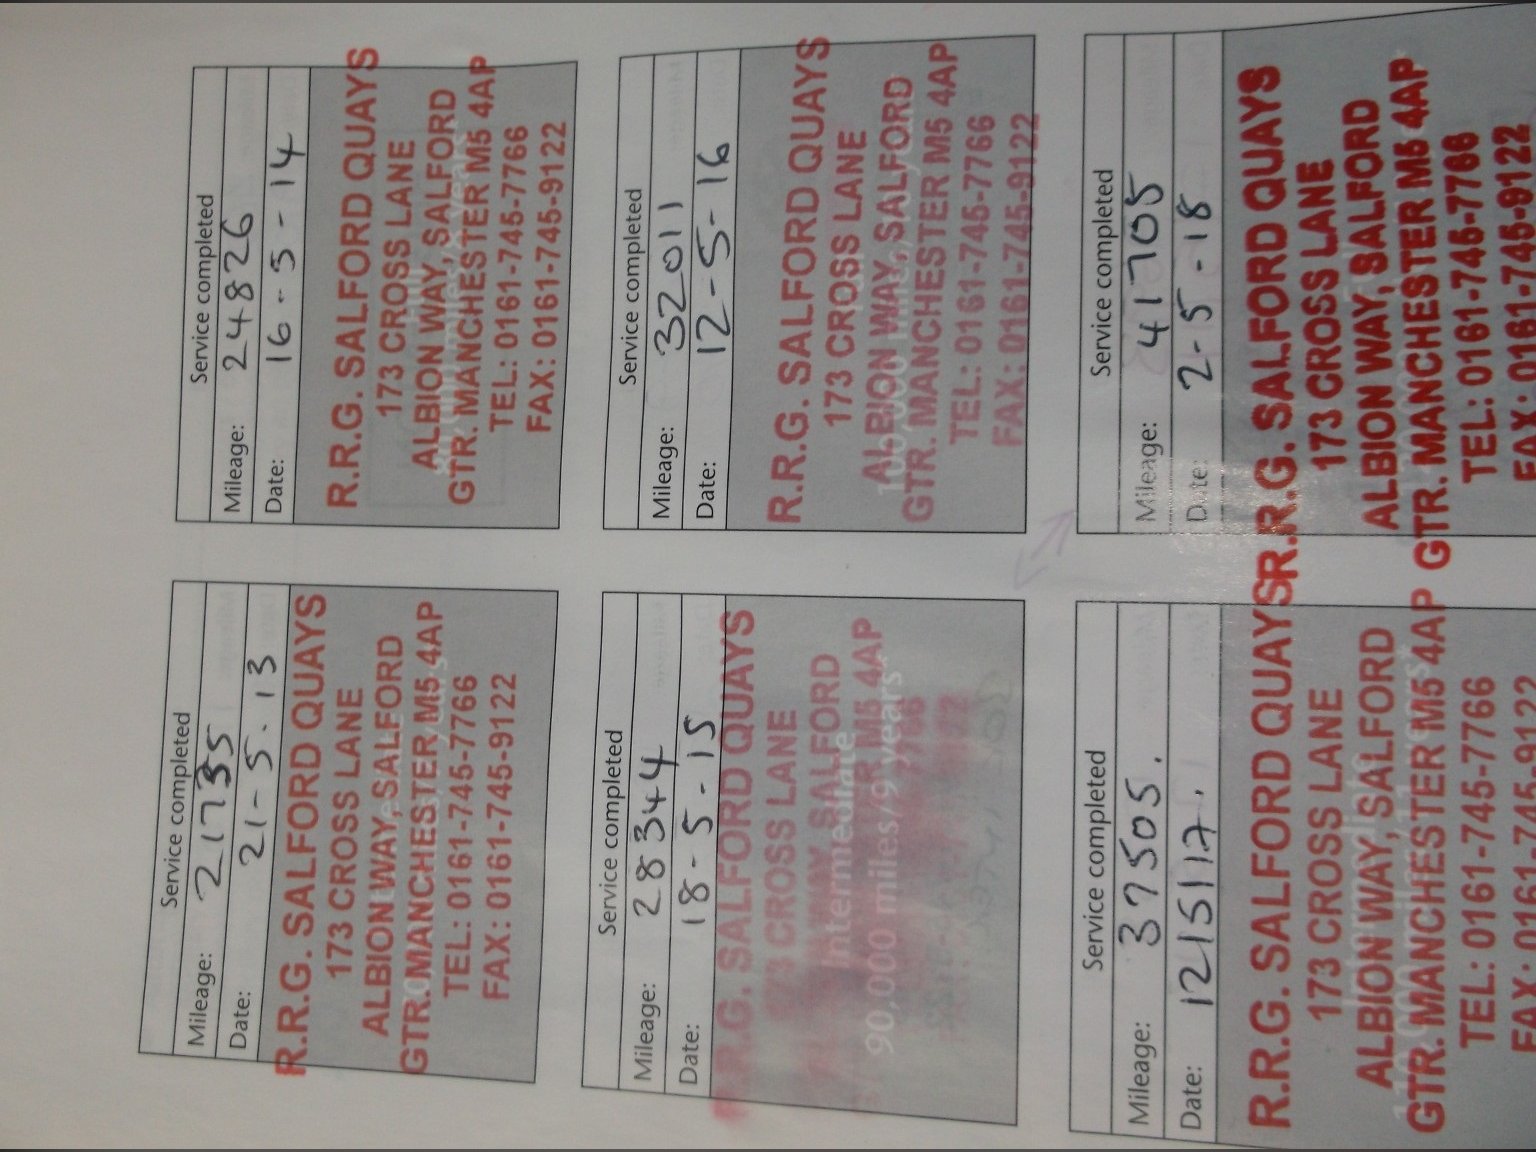 Service completed
Mileage: 21735
Date: 21-5.13
R.R.G. SALFORD QUAYS
173 CROSS LANE
ALBION WAY, SALFORD
GTR. MANCHESTER M5 4AP
TEL: 0161-745-7766
FAX: 0161-745-9122
Service completed
Mileage: 24826
Date: 16-5-14
R.R.G. SALFORD QUAYS
173 CROSS LANE
ALBION WAY, SALFORD
GTR. MANCHESTER M5 4AP
TEL: 0161-745-7766
FAX: 0161-745-9122
Service completed
Mileage: 28344
Date: 18-5-15
R.R.G. SALFORD QUAYS
173 CROSS LANE
WAY, SALFORD
Intermediate
M5 4AP
90,000 miles/9 years
Service completed
Mileage: 32011
Date: 12-5-16
R.R.G. SALFORD QUAYS
173 CROSS LANE
ALBION WAY, SALFORD
GTR. MANCHESTER M5 4AP
TEL: 0161-745-7766
FAX: 0161-745-9122
Service completed
Mileage: 37505.
Date: 12/5/17.
R.R.G. SALFORD QUAYS
173 CROSS LANE
ALBION WAY, SALFORD
GTR. MANCHESTER M5 4AP
TEL: 0161-745-7766
FAX: 0161-745-9122
Service completed
Mileage: 41705
Date: 2-5-18
R.R.G. SALFORD QUAYS
173 CROSS LANE
ALBION WAY, SALFORD
GTR. MANCHESTER M5 4AP
TEL: 0161-745-7766
FAX: 0161-745-9122